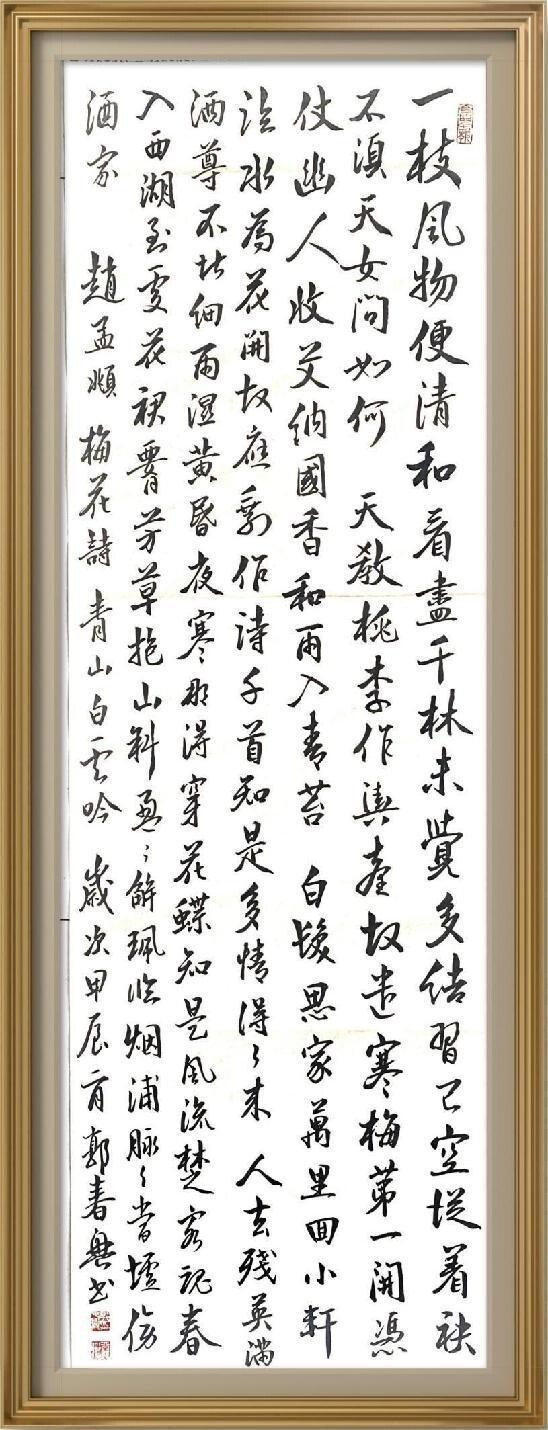 一枝风物便清和看盡千林未覺多結習已空從着袂
不須天女問如何 天教桃李作輿臺故遣寒梅第一開憑
仗幽人收艾納國香和雨入青苔 白髮思家萬里回小軒
臨水為花開故應剩作詩千首知是多情得々来 人去殘英滿
酒尊不堪细雨濕黄昏夜寒那得穿花蝶知是風流楚客魂春
入西湖到處花裙腰芳草抱山斜盈々解珮臨烟浦脉々當壚傍
酒家 趙孟頫 梅花詩 青山白雲吟 歲次甲辰 郭春興书